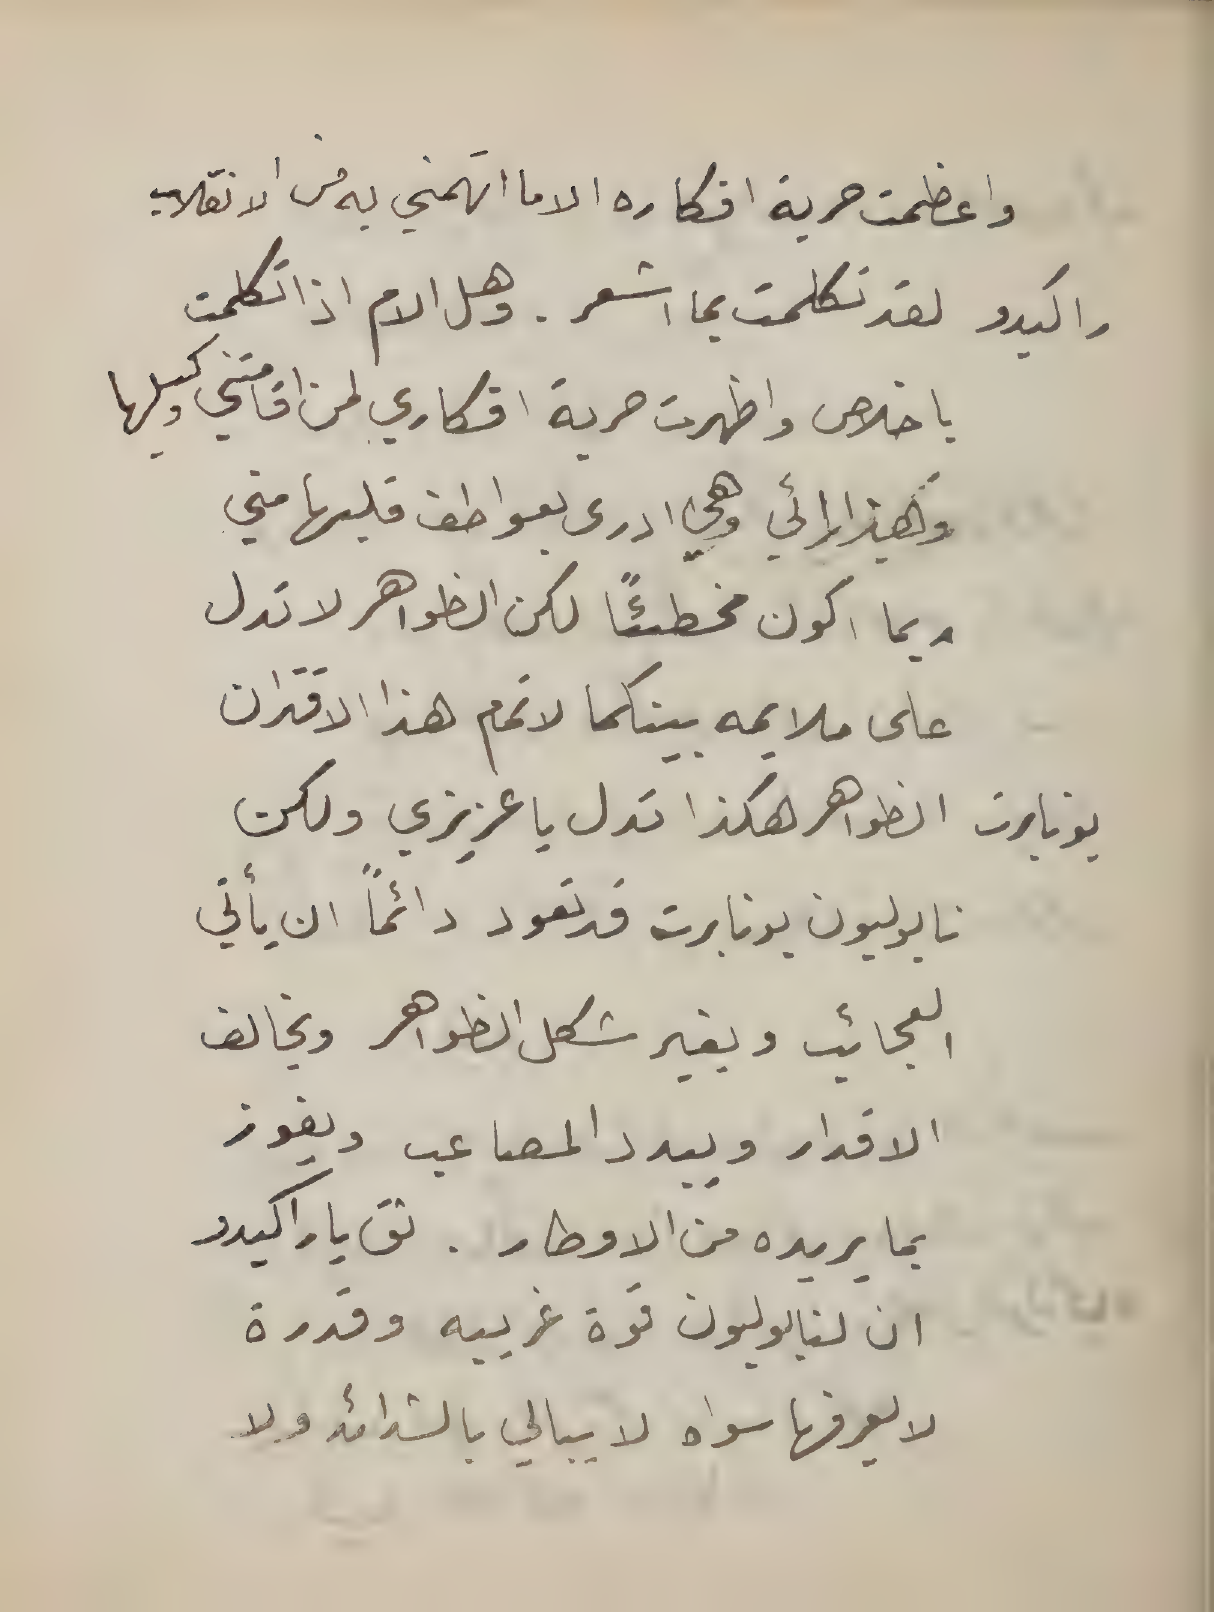 واعظمت حرية افكاره الا ما اتهمني به من الانقلاب
راكيدو لقد تكلمت بما اشعر . وهل الام اذا تكلمت
باخلاص واظهرت حرية افكاري لمن اقامتني وكيلها
وهذا رائي وهي ادرى بعواطف قلبها مني
ربما اكون مخطئًا لكن الظواهر لا تدل
على ملايمه بينكما لاتمام هذا الاقتران
بونابرت الظواهر هكذا تدل يا عزيزي ولكن
نابوليون بونابرت قد تعود دائمًا ان يأتي
العجائب ويغير شكل الظواهر ويخالف
الاقدار ويبدد المصاعب ويفوز
بما يريده من الاوطار . ثق يا راكيدو
ان لنابوليون قوة غريبه وقدرة
لا يعرفها سواه لا يبالي بالشدائد ولا